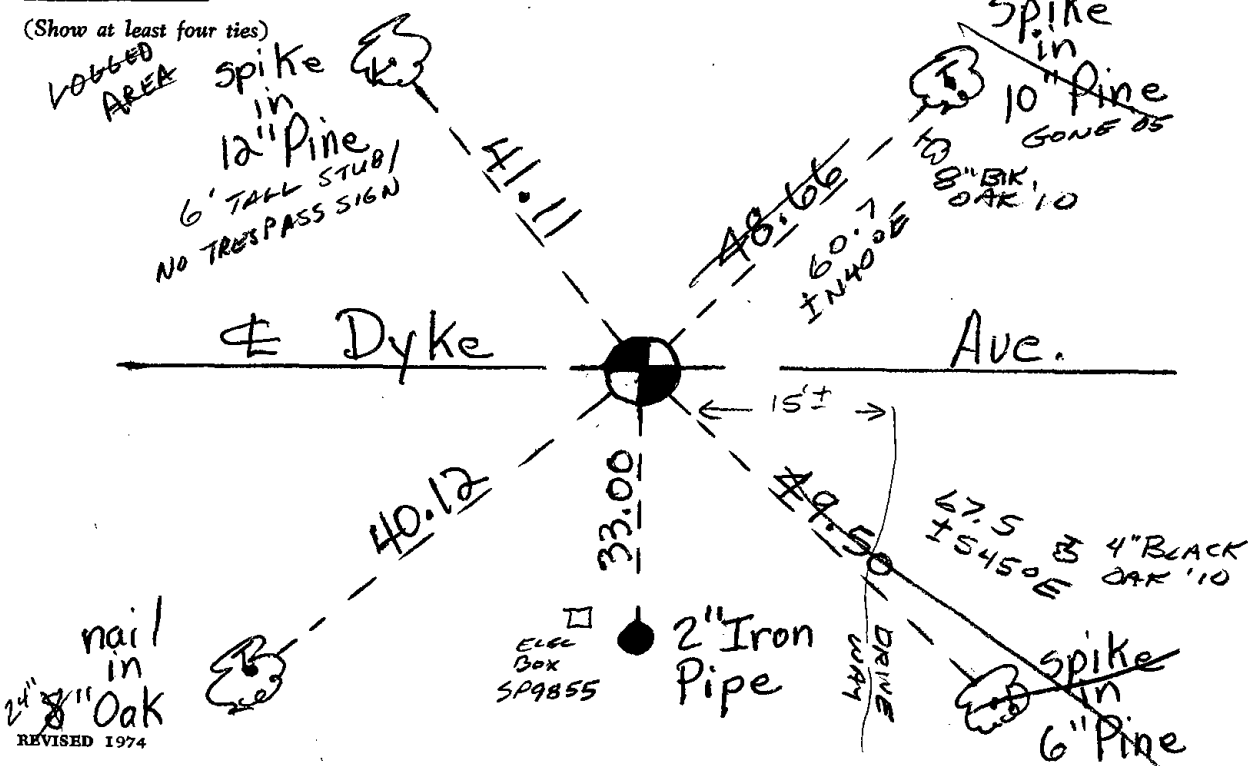 (Show at least four ties)
LOGGED
AREA
spike
in
12" Pine
6' TALL STUB/
NO TRESPASS SIGN
41.11
spike
in
10" Pine
GONE 05
8" BLK.
OAK '10
48.66
60.7
± N40°E
℄ Dyke Ave.
15'±
40.12
33.00
49.50
67.5
± S45°E
4" BLACK
OAK '10
nail
in
24" 8" Oak
ELEC
BOX
SP9855
2" Iron
Pipe
DRIVE
WAY
spike
in
6" Pine
REVISED 1974